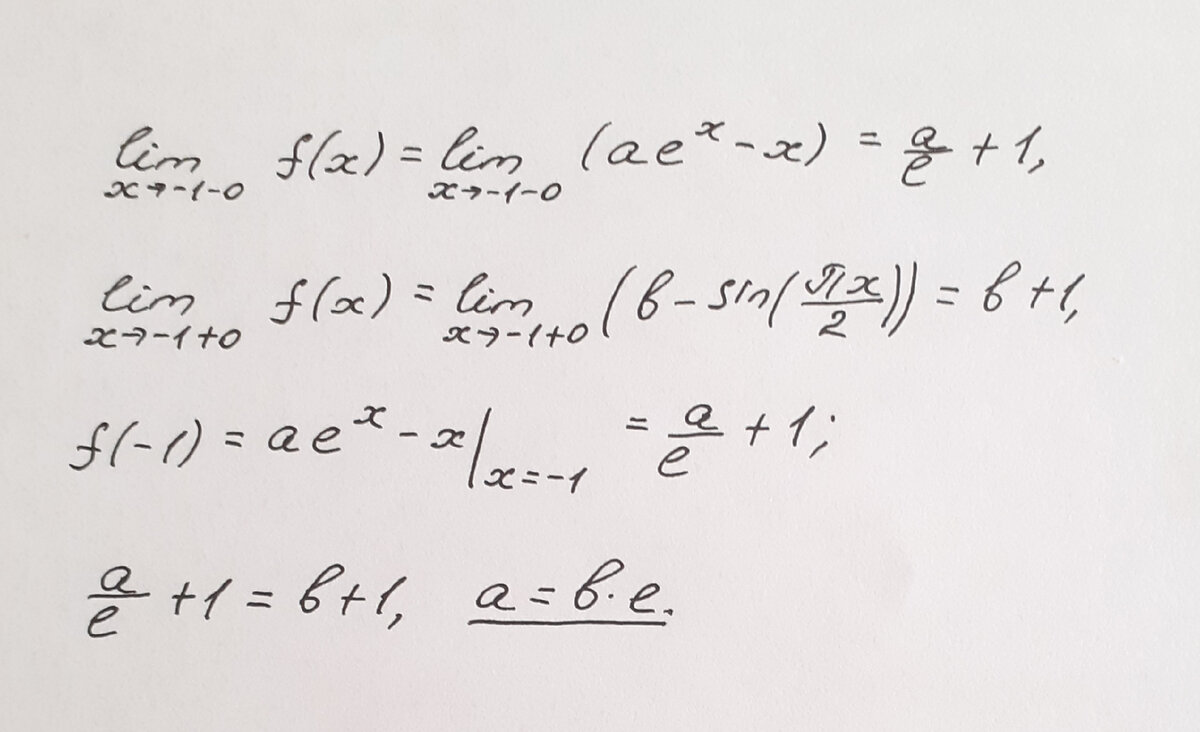 lim x→-1-0 f(x) = lim x→-1-0 (ae^x - x) = a/e + 1,
lim x→-1+0 f(x) = lim x→-1+0 (b - sin(πx/2)) = b + 1,
f(-1) = ae^x - x|x=-1 = a/e + 1;
a/e + 1 = b + 1, a = b·e.